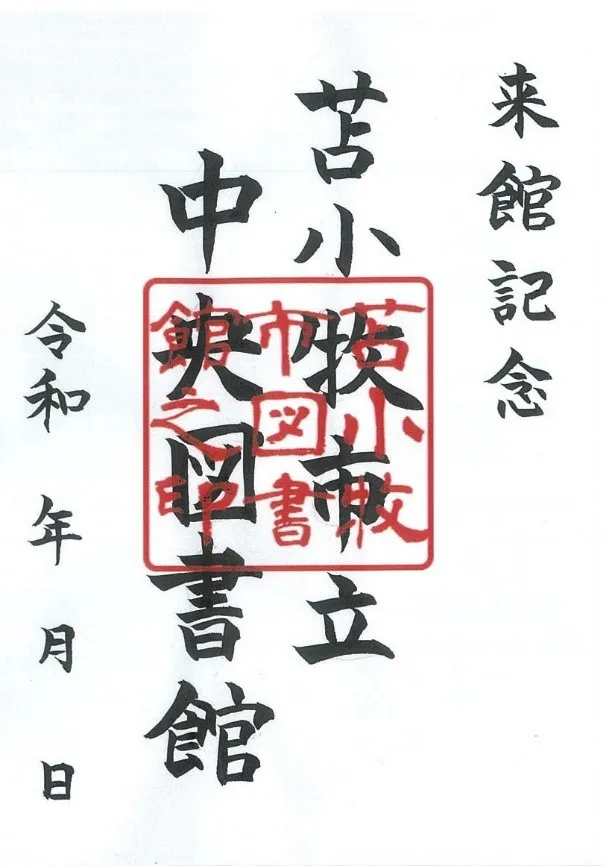 来館記念
苫小牧市立
中央図書館
令和 年 月 日
苫小牧
市図書
館之印